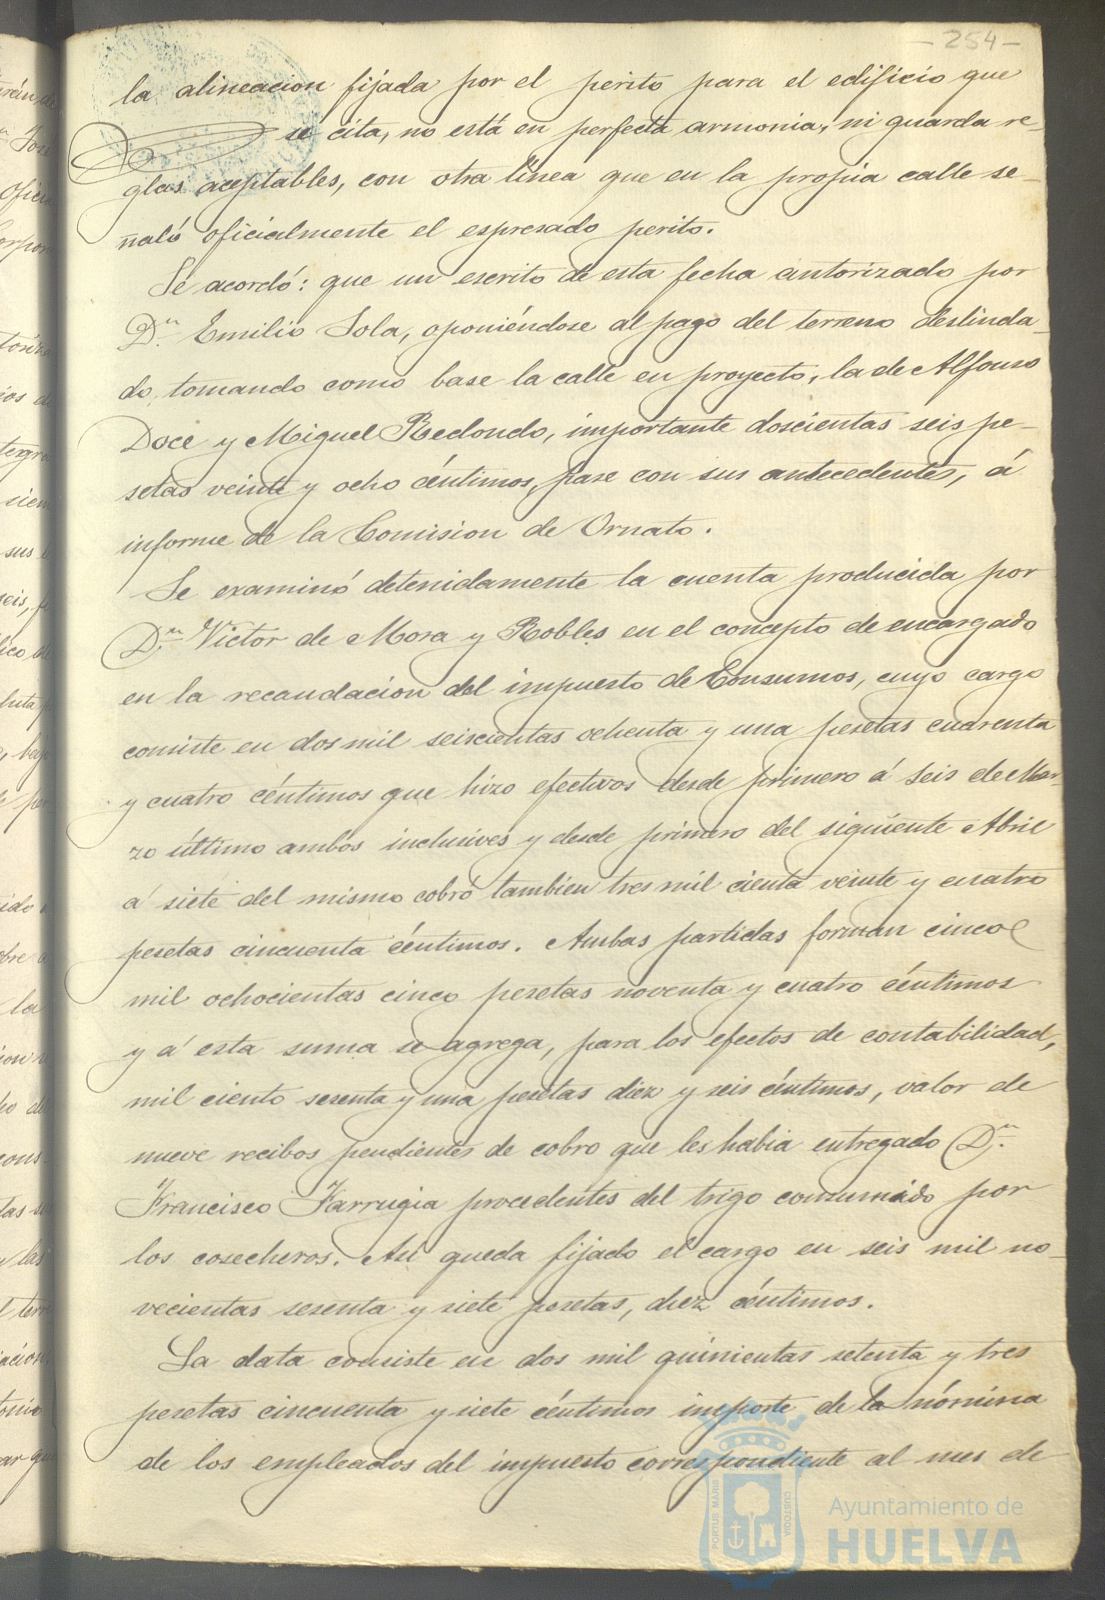 - 254 -
la alineacion fijada por el perito para el edificio que
se cita, no está en perfecta armonia, ni guarda re-
glas aceptables, con otra línea que en la propia calle se-
ñaló oficialmente el espresado perito.
Se acordó: que un escrito de esta fecha autorizado por
D.n Emilio Sola, oponiéndose al pago del terreno deslinda-
do, tomando como base la calle en proyecto, la de Alfonso
Doce y Miguel Redondo, importante doscientas seis pe-
setas veinte y ocho céntimos, pase con sus antecedentes, á
informe de la Comision de Ornato.
Se examinó detenidamente la cuenta producida por
D.n Victor de Mora y Robles en el concepto de encargado
en la recaudacion del impuesto de Consumos, cuyo cargo
consiste en dos mil seiscientas ochenta y una pesetas cuarenta
y cuatro céntimos que hizo efectivos desde primero á seis de Mar-
zo último ambos inclusives y desde primero del siguiente Abril
á siete del mismo cobró tambien tres mil cienta veinte y cuatro
pesetas cincuenta céntimos. Ambas partidas forman cinco
mil ochocientas cinco pesetas noventa y cuatro céntimos
y á esta suma se agrega, para los efectos de contabilidad,
mil ciento sesenta y una pesetas diez y seis céntimos, valor de
nueve recibos pendientes de cobro que les habia entregado D.n
Francisco Farrugia procedentes del trigo consumido por
los cosecheros. Asi queda fijado el cargo en seis mil no-
vecientas sesenta y siete pesetas, diez céntimos.
La data consiste en dos mil quinientas setenta y tres
pesetas cincuenta y siete céntimos importe de la nómina
de los empleados del impuesto correspondiente al mes de
PORTUS MARIS
CUSTODIA
Ayuntamiento de
HUELVA